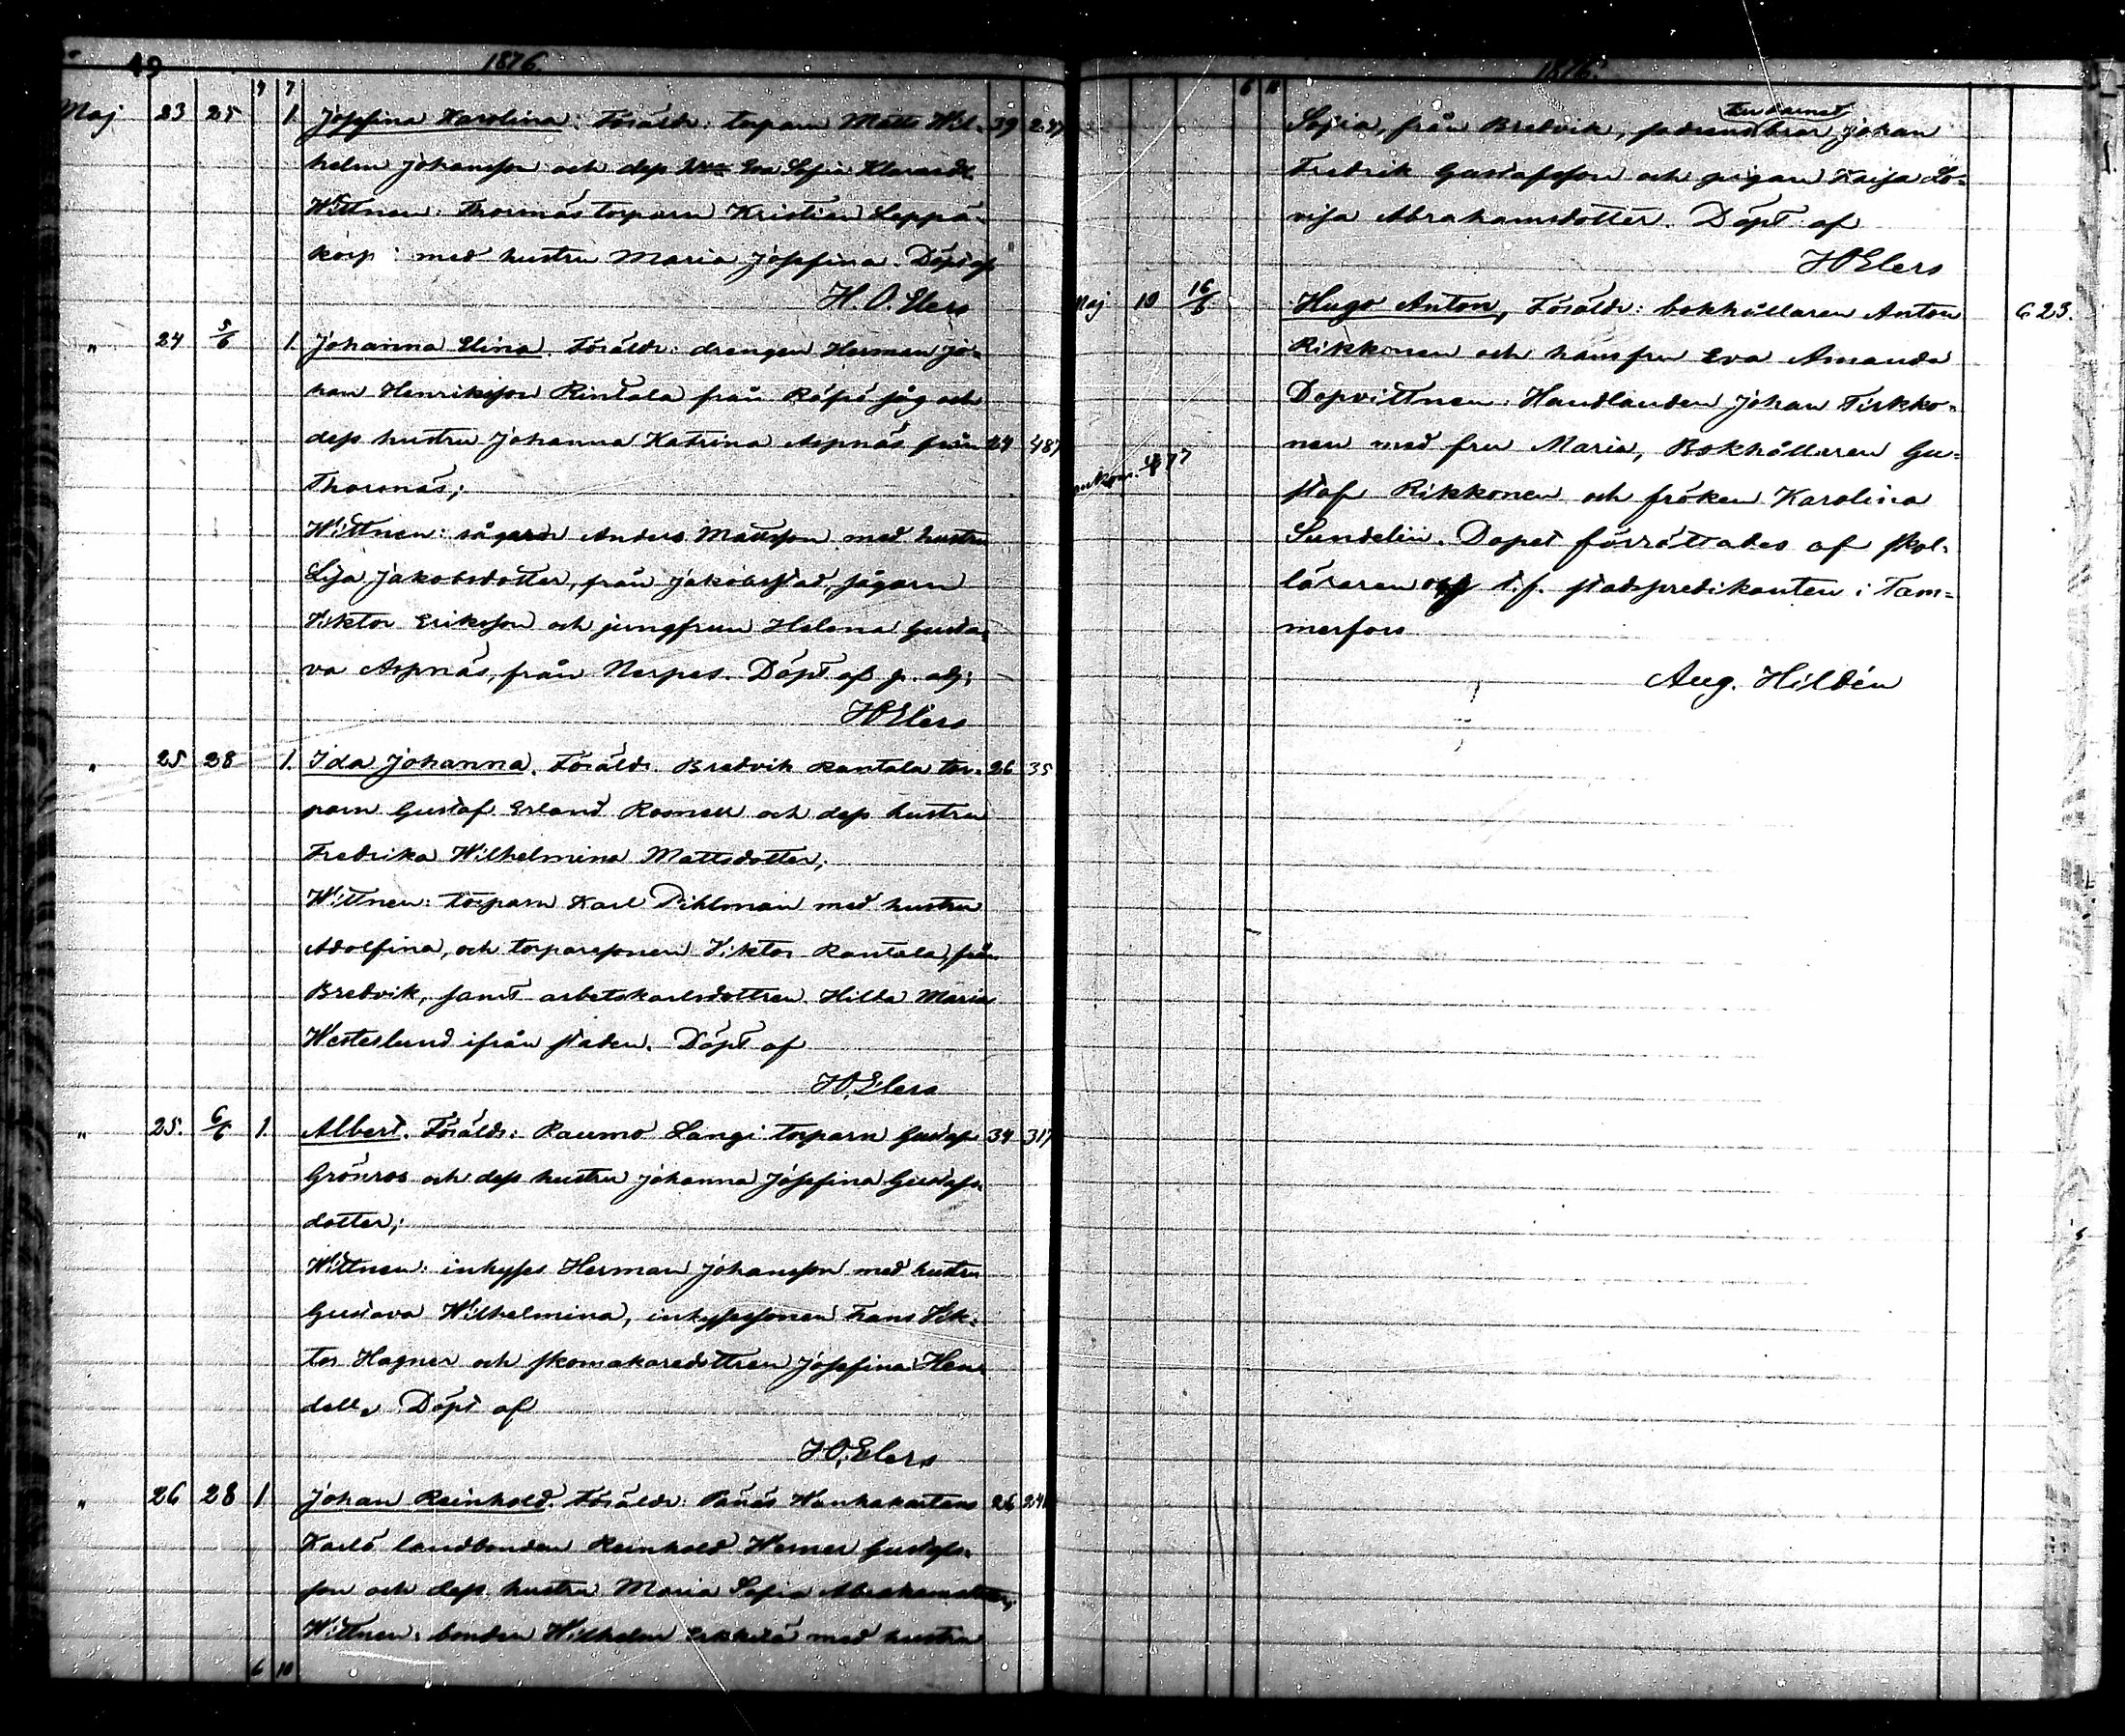 49 1876.
9 7
Maj 23 25 1. Josefina Karolina. Föräldr: torparn Matts Wil- 39 247
helm Johansson och dess Eva Sofia Klarasdr.
Wittnen: Thornäs torparn Kristian Leppä-
korp: med hustru Maria Josefina. Döpt af
H. O. Elers
" 24 5/6 1. Johanna Elina. Föräldr: drengen Herman Jo-
han Henriksson Rintala från Räfsö såg och
dess hustru Johanna Katrina Aspnäs från 24 487
Thornäs;
Wittnen: sågaren Anders Mattsson med hustru
Lisa Jakobsdotter, från Jakobsstad, sågarn
Viktor Eriksson och jungfrun Helena Gusta-
va Aspnäs, från Nerpes. Döpt af p. adj:
HOElers
" 25 28 1. Ida Johanna. Föräldr. Bredvik Rantala tor- 26 35
parn Gustaf Erland Rosnell och dess hustru
Fredrika Wilhelmina Mattsdotter;
Wittnen: torparn Karl Pihlman med hustru
Adolfina, och torparesonen Viktor Rantala, från
Bredvik, samt arbetskarlsdottren Hilda Maria
Westerlund ifrån staden. Döpt af
H.O.Elers
" 25. 6/6 1. Albert. Föräldr: Raumo Langi torparn Gustaf 34 317
Grönros och dess hustru Johanna Josefina Gustafs-
dotter;
Wittnen: inhyses Herman Johansson med hustru
Gustava Wilhelmina, inhysessonen Frans Vik-
tor Hagner och skomakaredottren Josefina Hen-
dell. Döpt af
H.O.Elers
" 26 28 1 Johan Reinhold. Föräldr: Panäs Wanhakartano 26 241
Karlö landbonden Reinhold Werner Gustafs-
son och dess hustru Maria Sofia Abrahamsdotter;
Wittnen: bonden Wilhelm Erkkilä med hustru
6 10
1876.
6 11
Sofia, från Bredvik, fadrens bror Johan
Fredrik Gustafsson och pigan Kaisa Lo-
visa Abrahamsdotter. Döpt af
HOElers
Maj 10 16/6 Hugo Anton, Föräldr: bokhållaren Anton 623.
Rikkonen och hans fru Eva Amanda
Dopvittnen: Handlanden Johan Tirkko-
nen med fru Maria, Bokhållaren Gu-
staf Rikkonen och fröken Karolina
Sundelin. Dopet förrättades af skol-
läraren och t.f. stadspredikanten i Tam-
merfors
Aug. Hildén